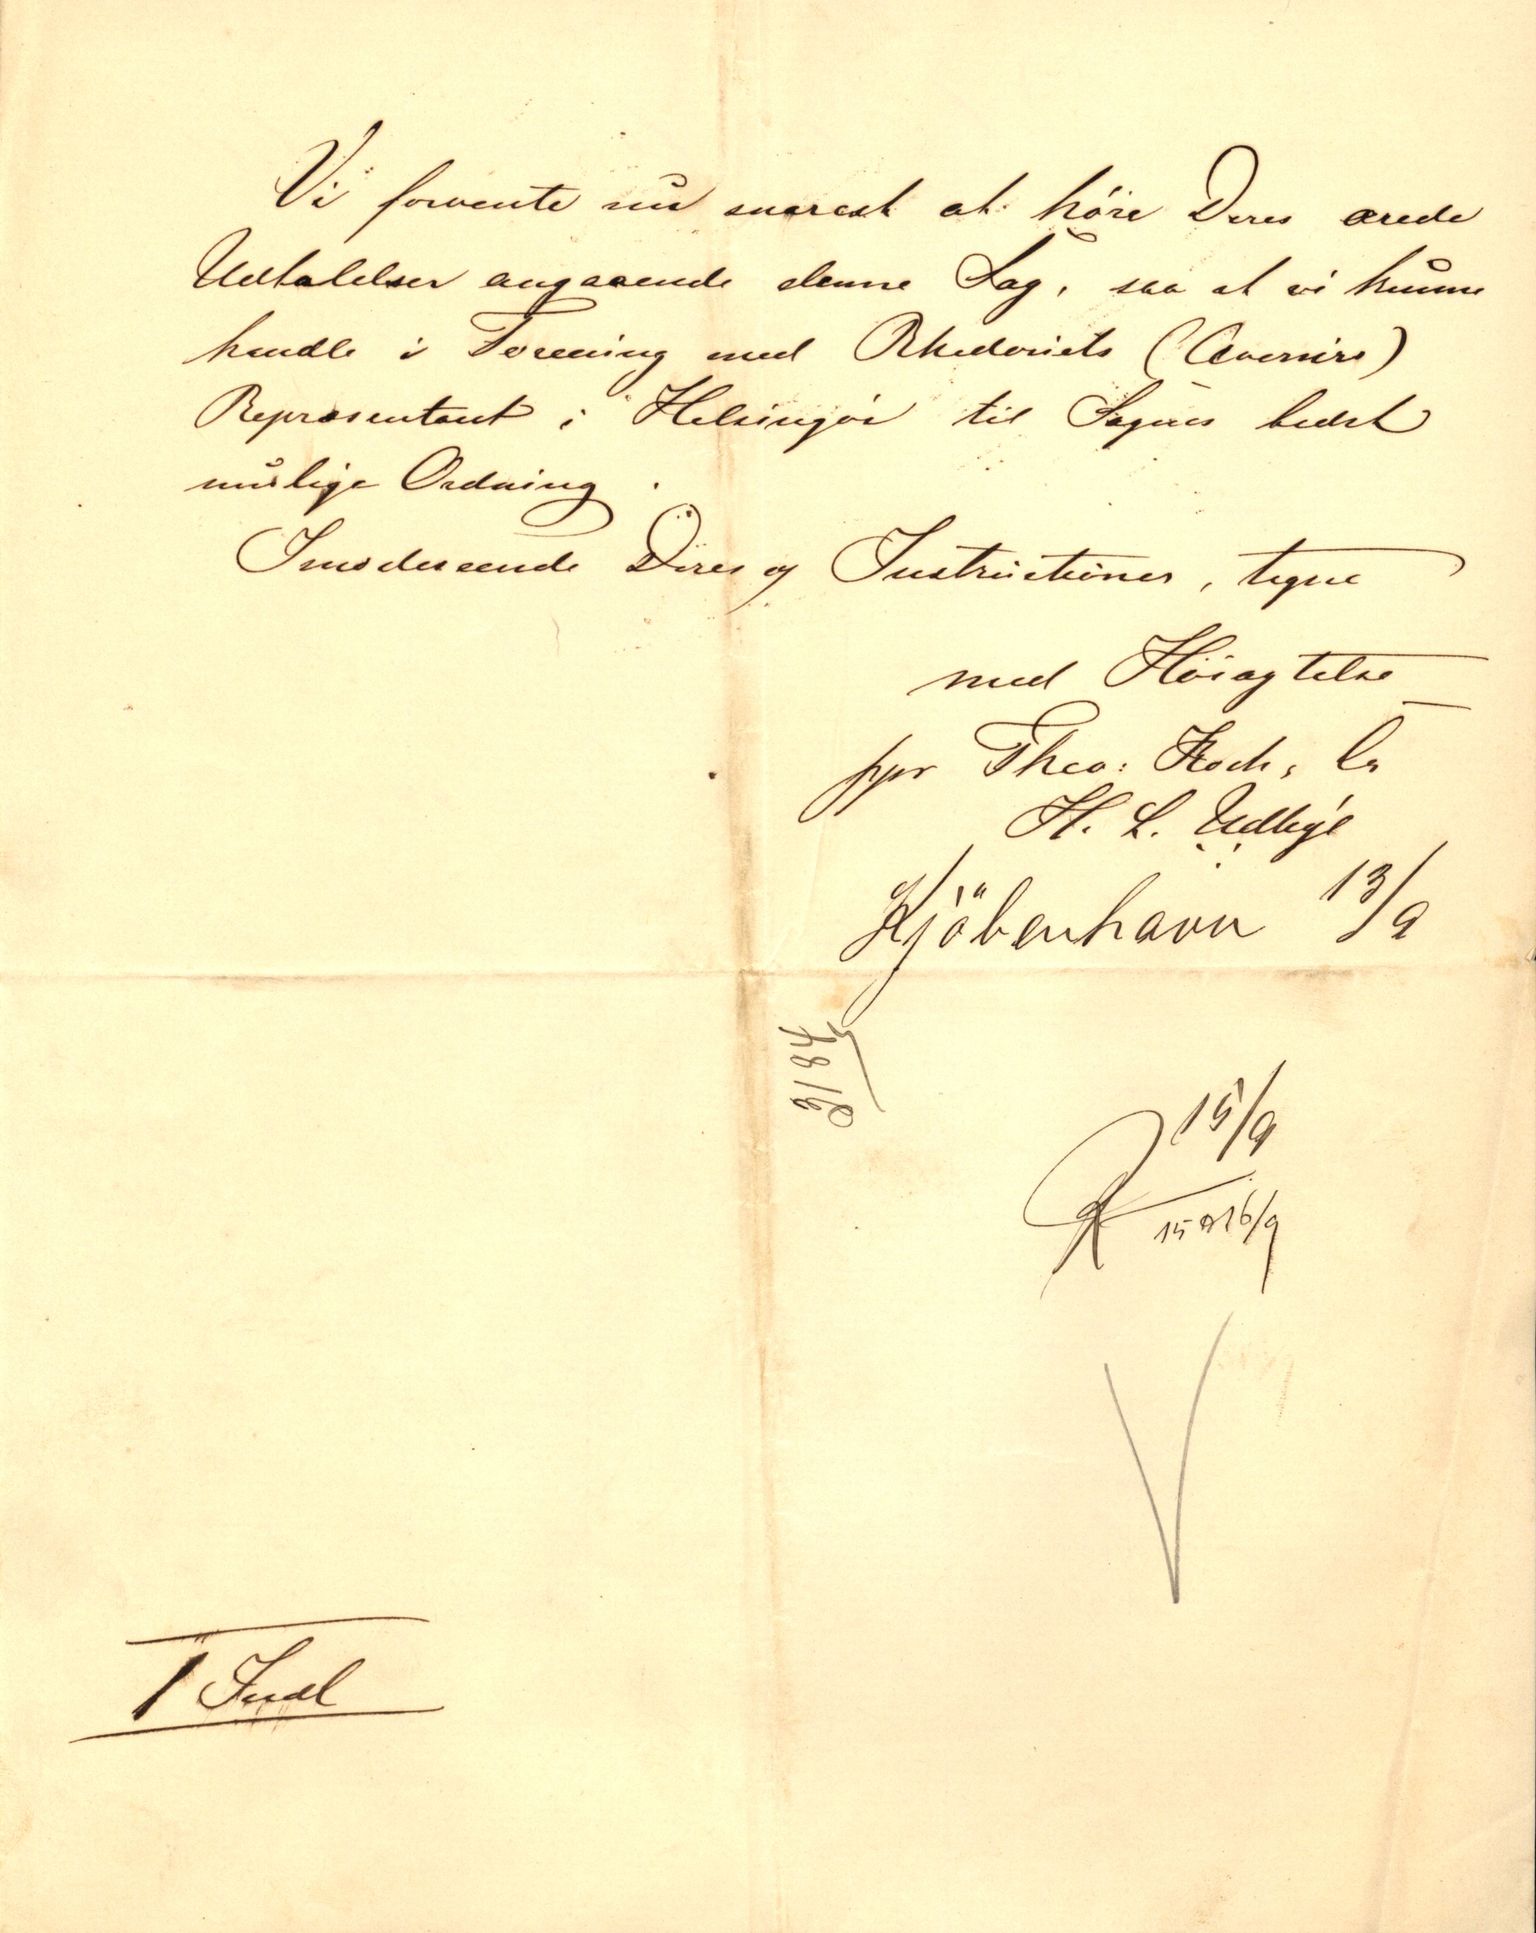 Vi forvente nu snarest at höre Deres ærede
Udtalelser angaaende denne Sag, saa at vi kunne
handle i Forening med Rhederiets (Avenirs)
Repræsentant i Helsingör til Sagens bedst
mulige Ordning.
Imödeseende Deres og Instructioner, tegne
med Höiagtelse
ppr Theo: Koch, Co
H. L. Udbye
Kjöbenhavn 13/9
15/9
15 & 16/9
1 Indl